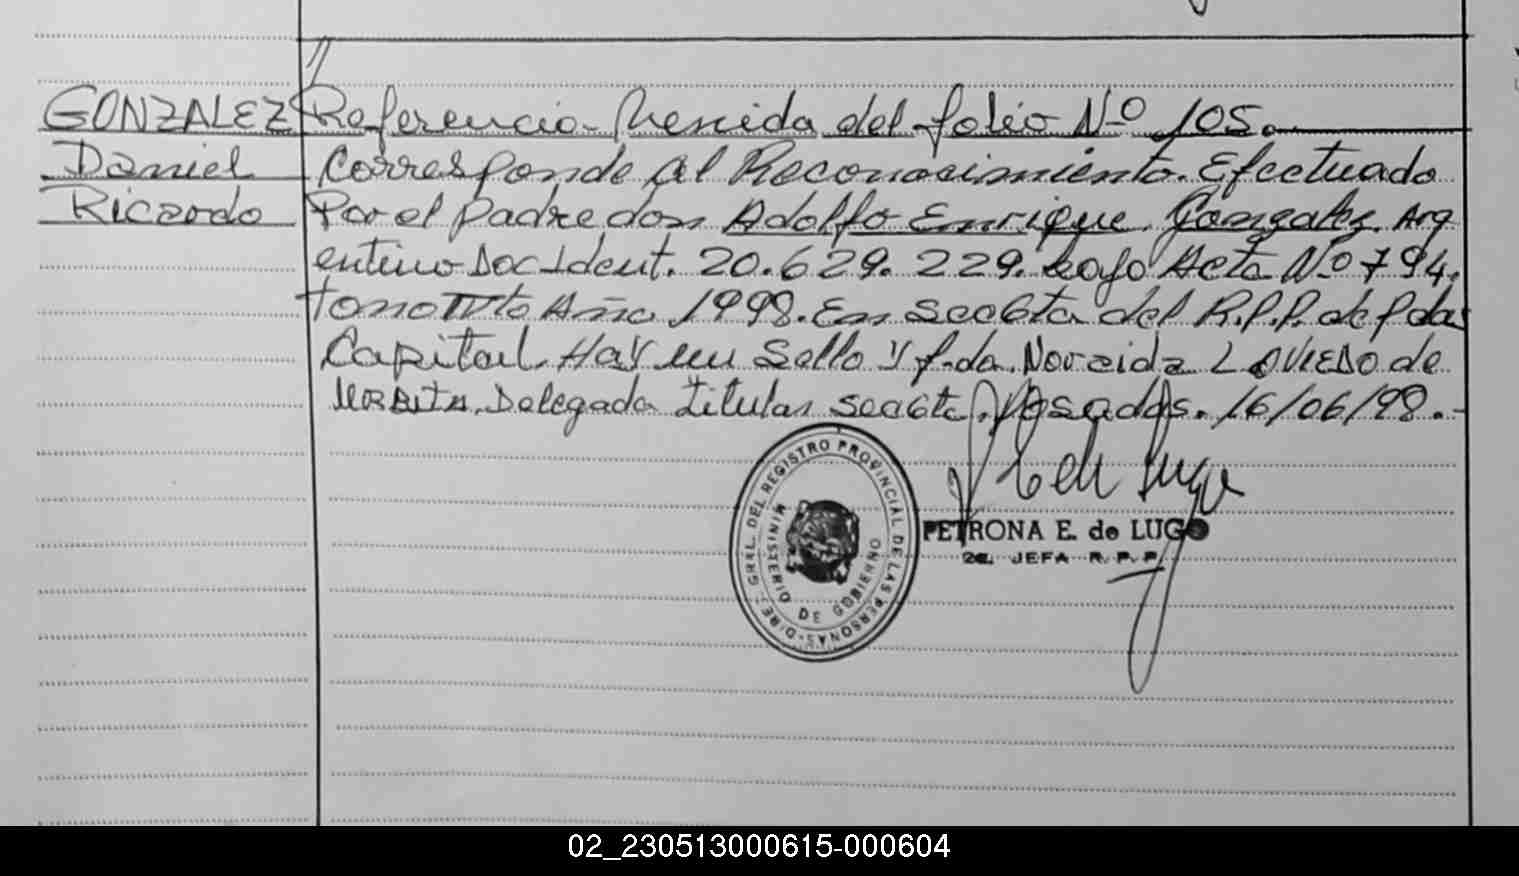 GONZALEZ Referencia Venida del folio Nº 105.
Daniel Corresponde al Reconocimiento. Efectuado
Ricardo Por el padre don Adolfo Enrique Gonzalez. Arg
entino Doc Ident. 20.629.229. bajo Acta Nº 794.
tomo IVto Año 1998. En Secc 6ta del R.P.P. de Pdas
Capital. Hay un Sello y f.da. Noreida L OVIEDO de
URBITA. Delegada titular secc 6ta. Posadas. 16/06/98.-
DIRE. GRAL. DEL REGISTRO PROVINCIAL DE LAS PERSONAS
MINISTERIO DE GOBIERNO
PETRONA E. de LUGO
2a. JEFA R.P.P.
02_230513000615-000604